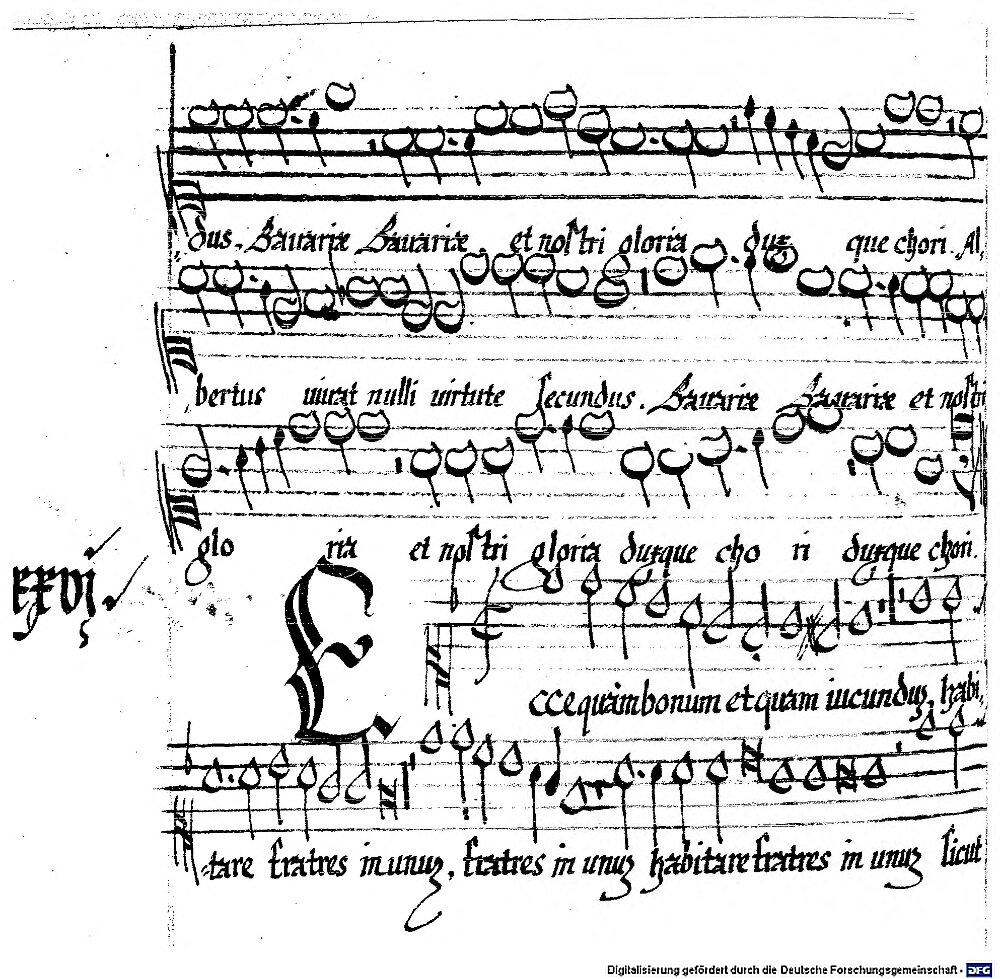 dus. Bauariæ Bauariæ. et nostri gloria duxque chori. Al,
bertus uiuat nulli uirtute secundus. Bauariæ Bauariæ et nostri
gloria et nostri gloria duxque chori duxque chori.
xxvj.
Ecce quàm bonum et quam iucundũ, habi-
tare fratres in unuʒ, fratres in unuʒ habitare fratres in unuʒ sicut
Digitalisierung gefördert durch die Deutsche Forschungsgemeinschaft - DFG